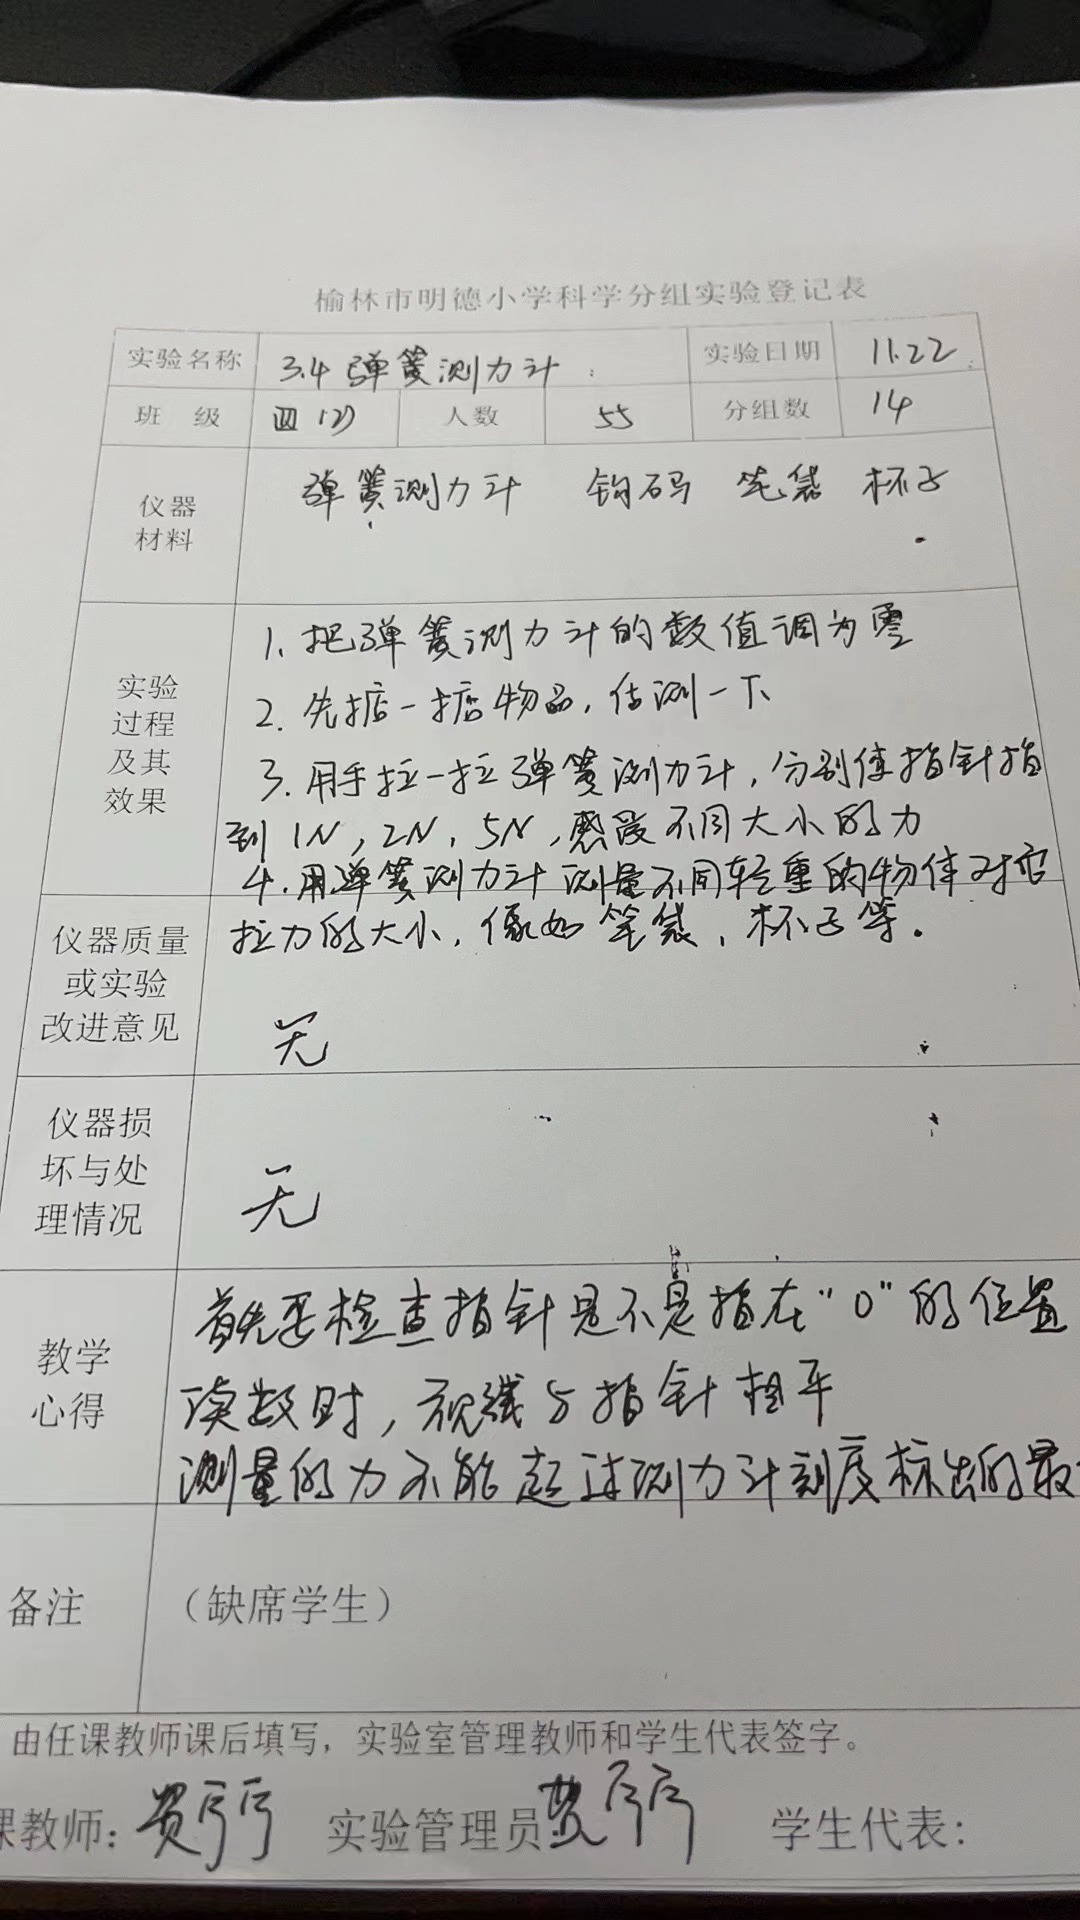 榆林市明德小学科学分组实验登记表
实验名称 3.4 弹簧测力计 实验日期 11.22
班 级 四(2) 人数 55 分组数 14
仪器材料 弹簧测力计 钩码 笔袋 杯子
实验过程及其效果
1. 把弹簧测力计的数值调为零
2. 先掂一掂物品, 估测一下
3. 用手拉一拉弹簧测力计, 分别使指针指
到 1N, 2N, 5N, 感受不同大小的力
4. 用弹簧测力计测量不同轻重的物体对它
拉力的大小, 像如笔袋, 杯子等。
仪器质量或实验改进意见 无
仪器损坏与处理情况 无
教学心得
首先要检查指针是不是指在"0"的位置
读数时, 视线与指针相平
测量的力不能超过测力计刻度标出的最
备注 (缺席学生)
由任课教师课后填写，实验室管理教师和学生代表签字。
课教师: 实验管理员 学生代表: